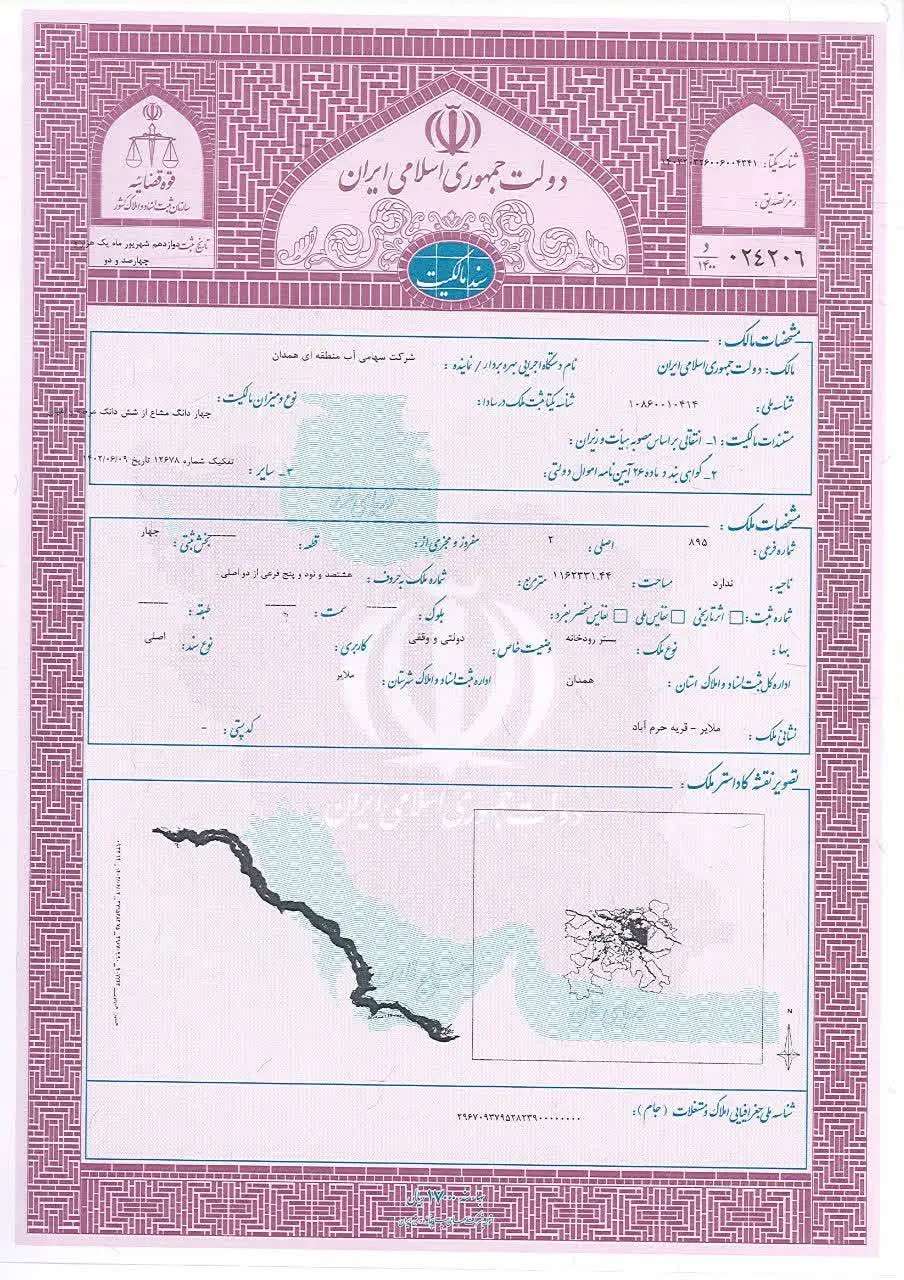 قوه قضائیه
سازمان ثبت اسناد و املاک کشور
تاریخ ثبت دوازدهم شهریور ماه یک هزار و
چهارصد و دو
دولت جمهوری اسلامی ایران
سند مالکیت
شناسه یکتا:
رمز تصدیق:
۰۲۴۲۰۶ د ۱۴۰۰
مشخصات مالک:
مالک: دولت جمهوری اسلامی ایران نام دستگاه اجرایی بهره بردار / نماینده: شرکت سهامی آب منطقه ای همدان
شناسه ملی: ۱۰۸۶۰۰۱۰۴۱۴ شناسه یکتا ثبت ملک در سادا: نوع و میزان مالکیت: چهار دانگ مشاع از شش دانگ
مستندات مالکیت: ۱- انتقالی بر اساس مصوبه هیأت وزیران:
۲- گواهی بند د ماده ۲۶ آیین نامه اموال دولتی: ۳- سایر: تفکیک شماره ۱۲۶۷۸ تاریخ ۱۴۰۲/۰۶/۰۹
مشخصات ملک:
شماره فرعی: ۸۹۵ اصلی: ۲ مفروز و مجزی از: قطعه: ــــــ بخش ثبتی: چهار
ناحیه: ندارد مساحت: ۱۱۶۲۳۳۱.۴۴ مترمربع: شماره ملک به حروف: هشتصد و نود و پنج فرعی از دو اصلی.
شماره ثبت: □ اثر تاریخی □ نفایس ملی □ نفایس منحصر بفرد: بلوک: ــــــ سمت: ــــــ طبقه: ــــــ
بها: نوع ملک: بستر رودخانه وضعیت خاص: دولتی و وقفی کاربری: نوع سند: اصلی
اداره کل ثبت اسناد و املاک استان: همدان اداره ثبت اسناد و املاک شهرستان: ملایر
نشانی ملک: ملایر - قریه حرم آباد کد پستی: -
تصویر نقشه کاداستر ملک:
N
شناسه ملی جغرافیایی املاک و مستغلات (جام): ۲۹۶۷۰۹۳۷۹۵۲۸۲۳۹۰۰۰۰۰۰۰۰
دولت جمهوری اسلامی ایران